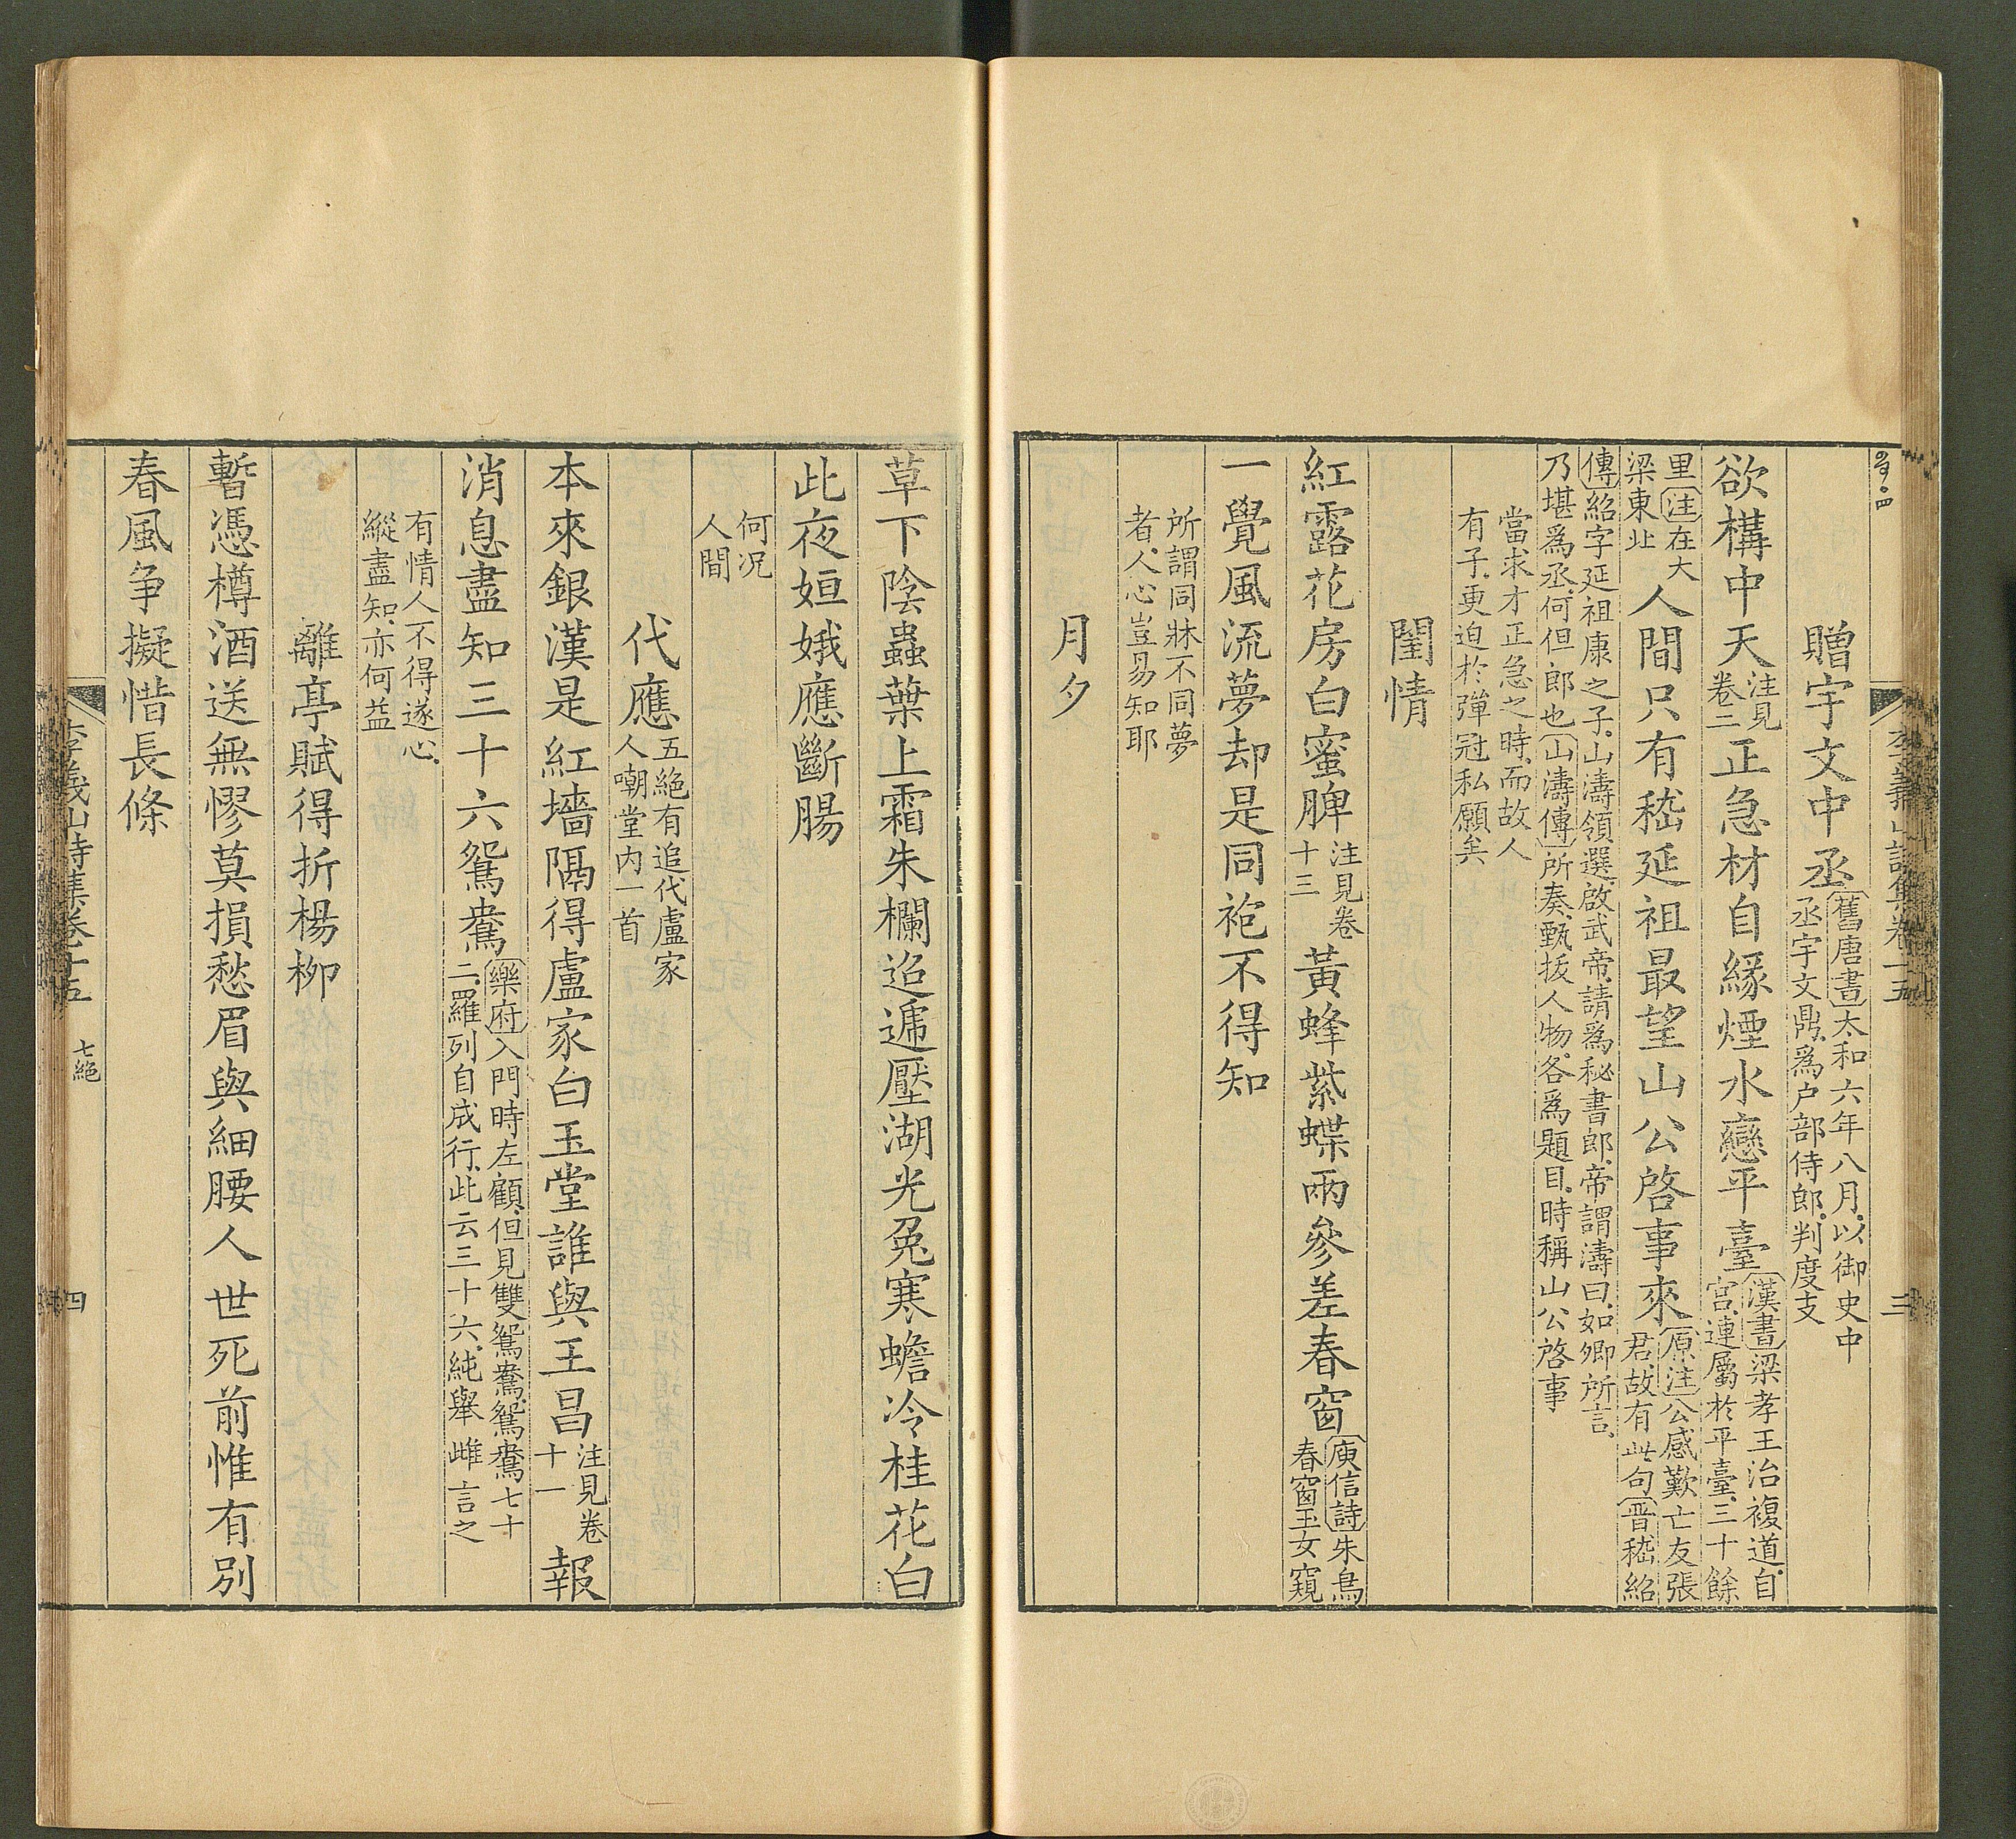 李義山詩集卷十五
三
贈宇文中丞 舊唐書太和六年八月以御史中丞宇文鼎為户部侍郎判度支
欲構中天 注見卷二 正急材自緣煙水戀平臺 漢書梁孝王治複道自宮連屬於平臺三十餘
里注在大梁東北 人間只有嵇延祖最望山公啓事來 原注公感歎亡友張君故有此句晉嵇紹
傳紹字延祖康之子山濤領選啟武帝請爲秘書郎帝謂濤曰如卿所言
乃堪爲丞何但郎也山濤傳所奏甄拔人物各爲題目時稱山公啓事
當求才正急之時而故人
有子更迫於彈冠私願矣
閨情
紅露花房白蜜脾 注見卷十三 黃蜂紫蝶兩參差春窗 庾信詩朱鳥春窗玉女窺
一覺風流夢却是同袍不得知
所謂同牀不同夢
者人心豈易知耶
月夕
草下陰蟲葉上霜朱欄迢遞壓湖光兔寒蟾冷桂花白
此夜姮娥應斷腸
何况
人間
代應 五絕有追代盧家人嘲堂内一首
本來銀漢是紅墻隔得盧家白玉堂誰與王昌 注見卷十一 報
消息盡知三十六鴛鴦 樂府入門時左顧但見雙鴛鴦鴛鴦七十二羅列自成行此云三十六純舉雌言之
有情人不得遂心
縱盡知亦何益
離亭賦得折楊柳
暫憑樽酒送無憀莫損愁眉與細腰人世死前惟有別
春風争擬惜長條
李義山詩集卷十五
七絕
四